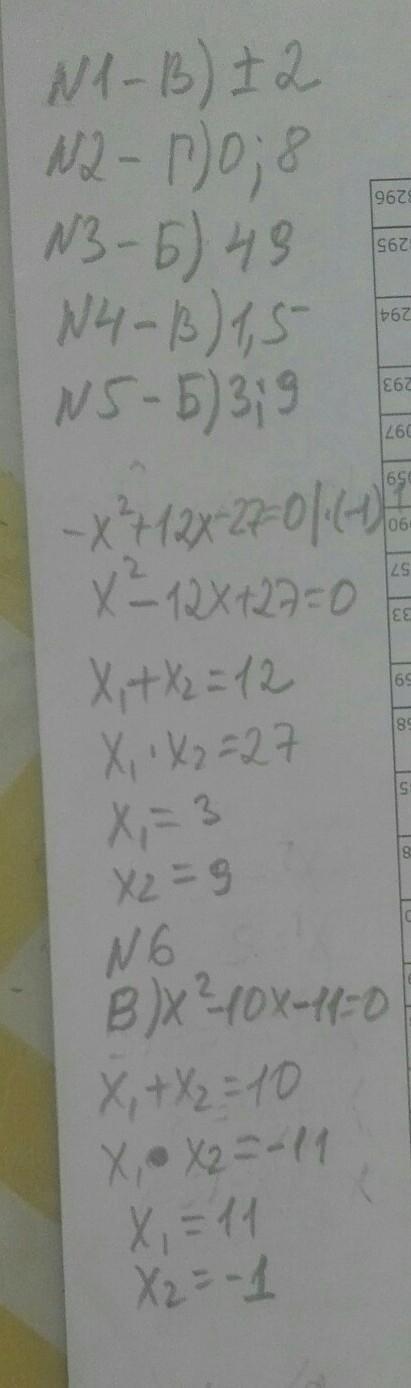 N1 – В) ± 2
N2 – Г) 0; 8
N3 – Б) 49
N4 – В) 1,5
N5 – Б) 3; 9
-x²+12x-27=0|·(-1)
x²-12x+27=0
x₁+x₂=12
x₁·x₂=27
x₁=3
x₂=9
N6
В) x²-10x-11=0
x₁+x₂=10
x₁·x₂=-11
x₁=11
x₂=-1